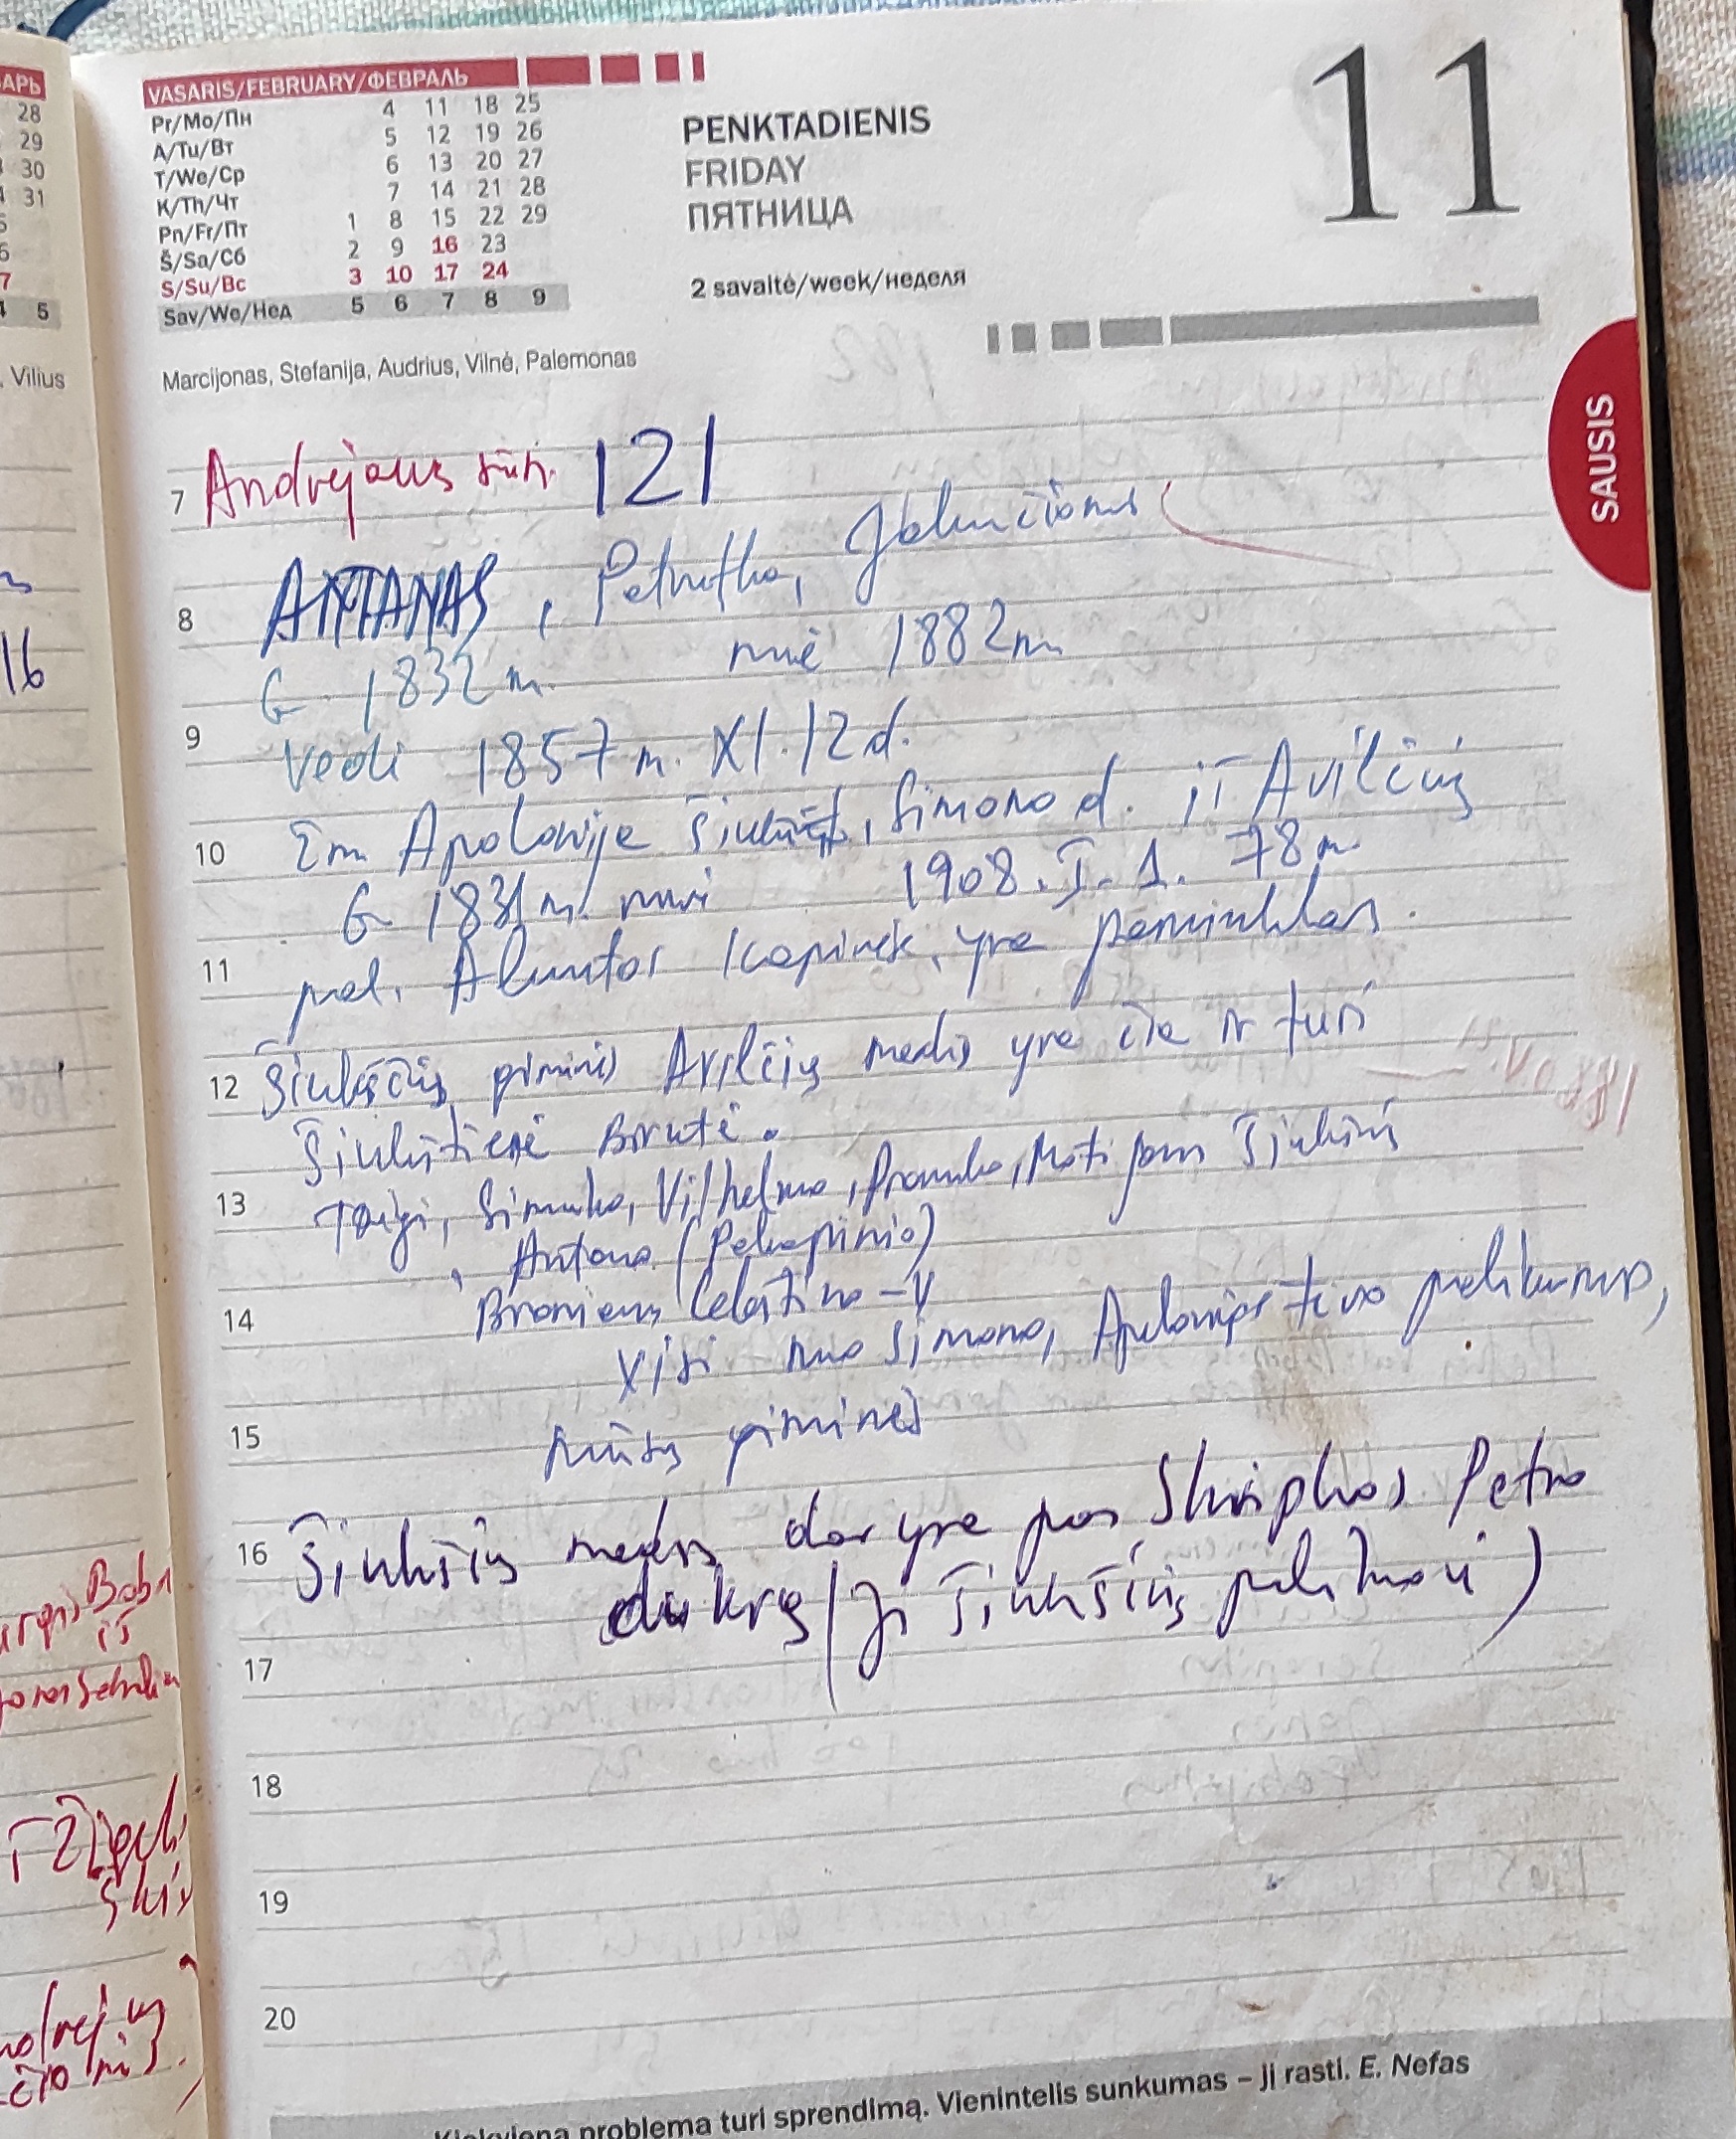 VASARIS/FEBRUARY/ФЕВРАЛЬ
Pr/Mo/Пн 4 11 18 25
A/Tu/Вт 5 12 19 26
T/We/Ср 6 13 20 27
K/Th/Чт 7 14 21 28
Pn/Fr/Пт 1 8 15 22 29
Š/Sa/Сб 2 9 16 23
S/Su/Вс 3 10 17 24
Sav/We/Нед 5 6 7 8 9
PENKTADIENIS
FRIDAY
ПЯТНИЦА
2 savaitė/week/неделя
11
Marcijonas, Stefanija, Audrius, Vilnė, Palemonas
SAUSIS
28
29
30
31
5
, Vilius
16
7 Andrejaus sūn. 121
8 ANTANAS, Petrutko,
G 1832 m. mirė 1882 m
9 Vedė 1857 m. XI. 12 d.
10 Em Apolonija Simono d. iš Avilčių
G 1831 m. mirė 1908. I. 1. 78 m
11 pal. Aluntos kapinėse, yra paminklas.
12 Šiukščių giminės Avilčių medis yra čia ir turi
Šiukštienė Birutė.
13 Taigi, Simuko, Vilhelmo, Pranuko, Motiejaus
, Antano
14 Broniaus Celestino - V
Visi nuo Simono, Apolonijos tėvo palikuonys,
15 mūsų giminės
16 Šiukščių medis dar yra pas Skripkos Petro
dukrą (Ji Šiukščių palikuonė)
17
18
19
20
Kiekviena problema turi sprendimą. Vienintelis sunkumas – jį rasti. E. Nefas